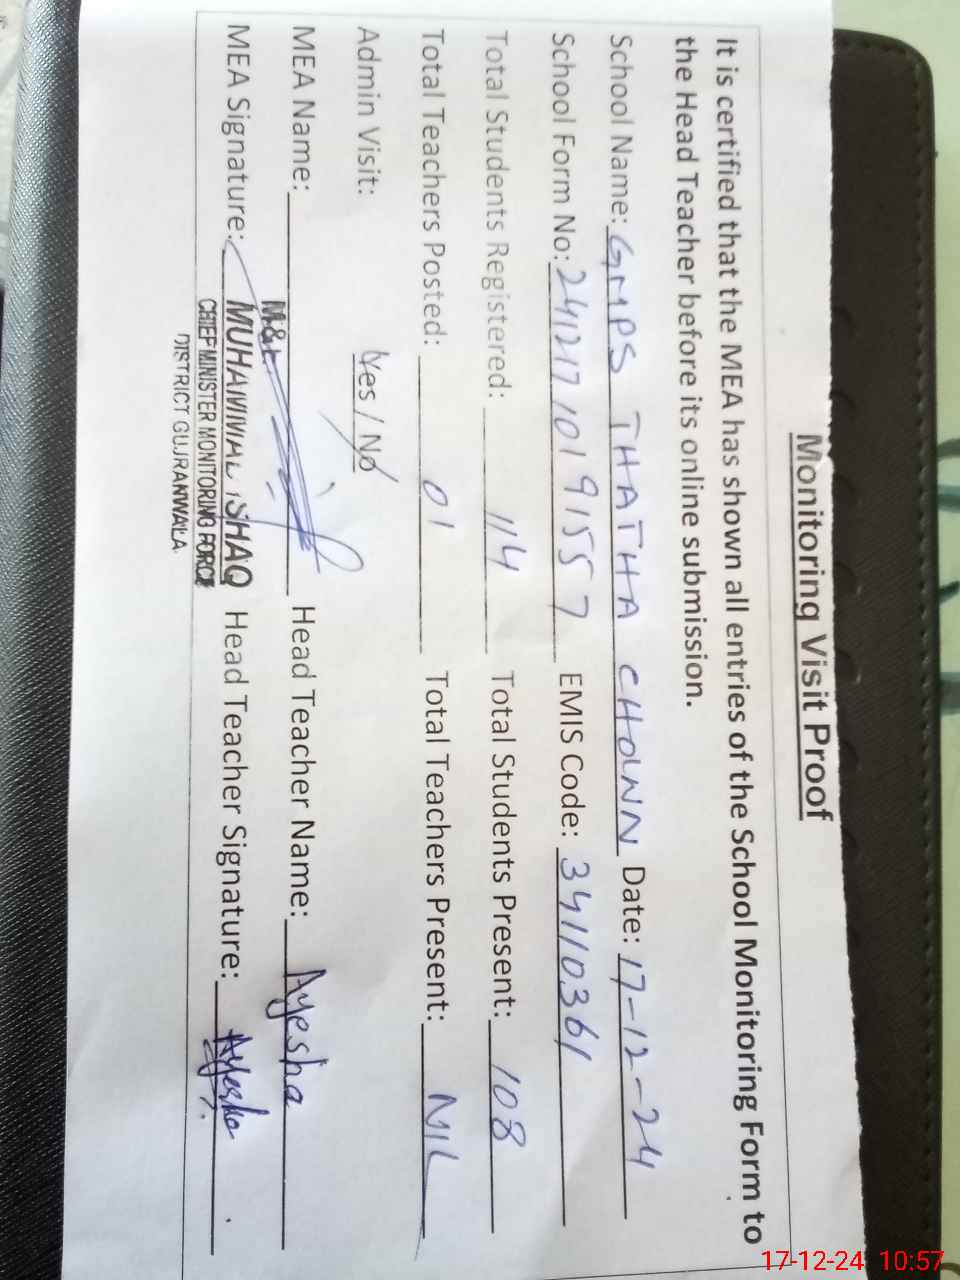 Monitoring Visit Proof
It is certified that the MEA has shown all entries of the School Monitoring Form to
the Head Teacher before its online submission.
School Name: GMPS THATHA CHOWN Date: 17-12-24
School Form No: 241217 1019155 7 EMIS Code: 34110361
Total Students Registered: 114 Total Students Present: 108
Total Teachers Posted: 01 Total Teachers Present: NIL
Admin Visit: Yes / No
MEA Name: Head Teacher Name: Ayesha
MEA Signature: Head Teacher Signature: Ayesha
MUHAMMAD ISHAQ
CHIEF MINISTER MONITORING FORCE
DISTRICT GUJRANWALA.
17-12-24 10:57